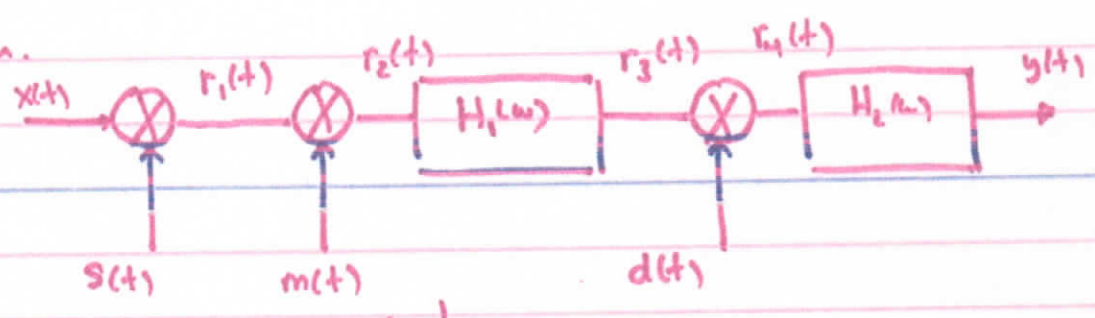 x(t) r₁(t) r₂(t) H₁(ω) r₃(t) r₄(t) H₂(ω) y(t)
s(t) m(t) d(t)